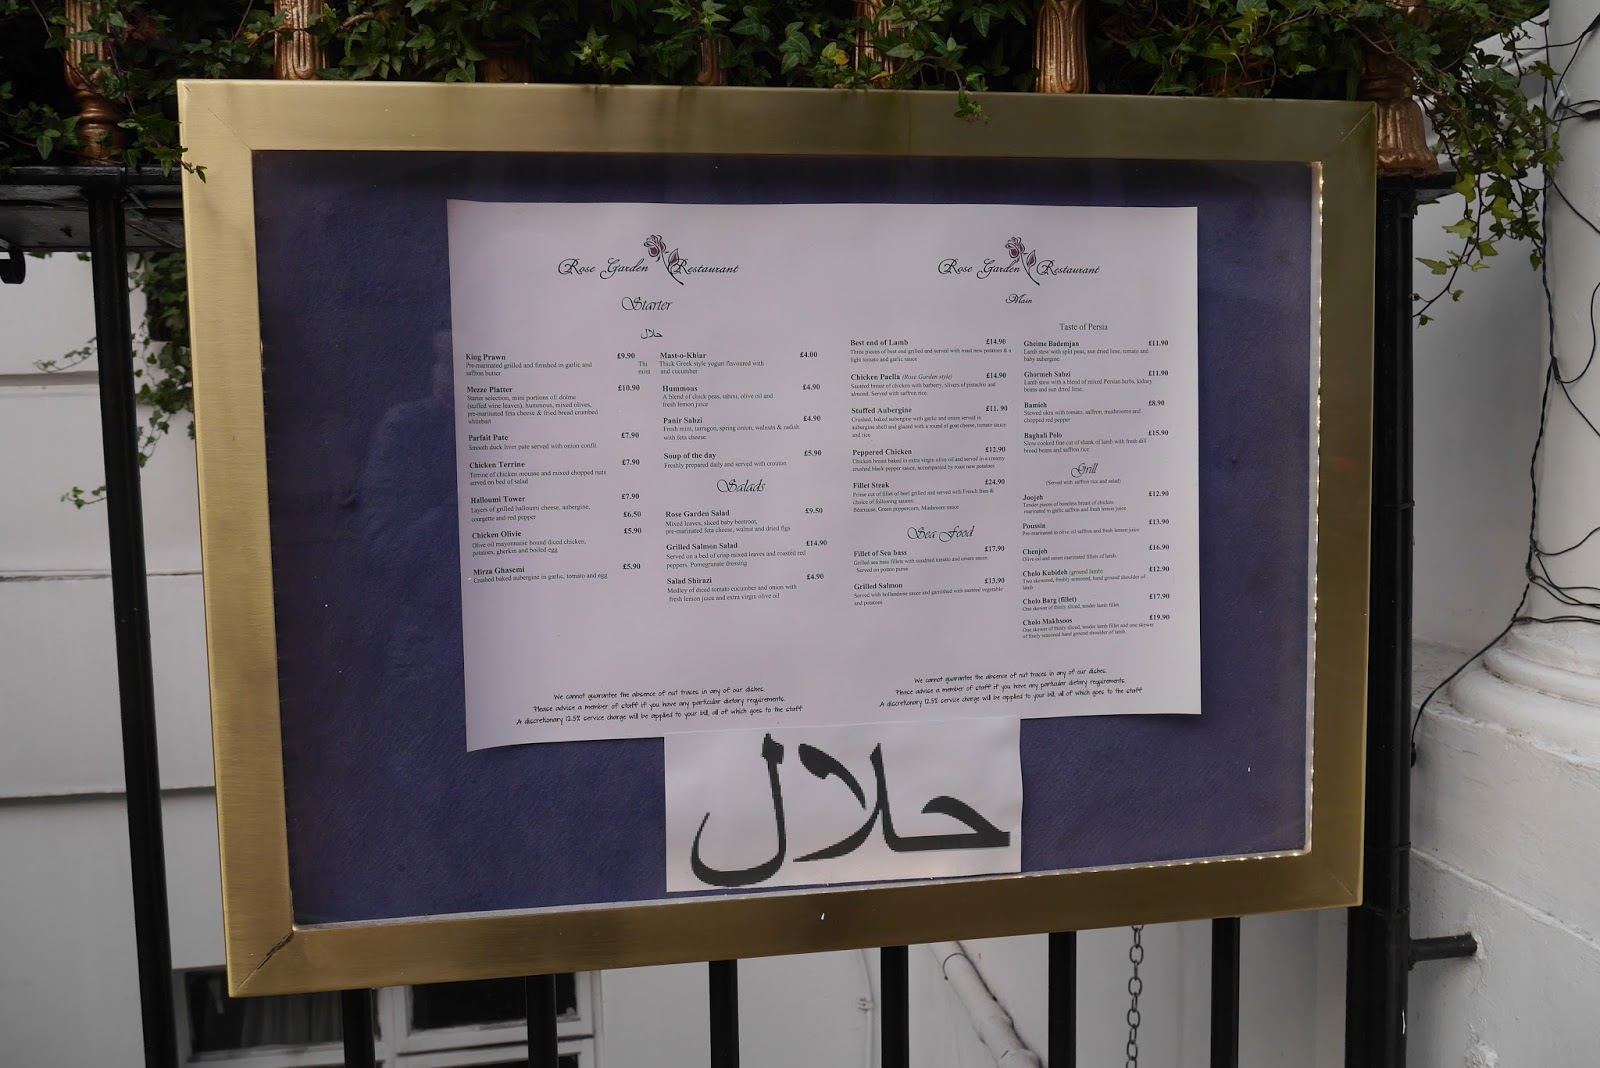 Rose Garden Restaurant
Starter
حلال
King Prawn £9.90
Pre-marinated grilled and finished in garlic and
saffron butter
Mezze Platter £10.90
Starter selection, mini portions of: dolme
(stuffed wine leaves), hummous, mixed olives,
pre-marinated feta cheese & fried bread crumbed
whitebait
Parfait Pate £7.90
Smooth duck liver pate served with onion confit
Chicken Terrine £7.90
Terrine of chicken mousse and mixed chopped nuts
served on bed of salad
Halloumi Tower £7.90
Layers of grilled halloumi cheese, aubergine,
courgette and red pepper £6.50
Chicken Olivie £5.90
Olive oil mayonnaise bound diced chicken,
potatoes, gherkin and boiled egg
Mirza Ghasemi £5.90
Crushed baked aubergine in garlic, tomato and egg
Mast-o-Khiar £4.00
Thi Thick Greek style yogurt flavoured with
mint and cucumber
Hummous £4.90
A blend of chick peas, tahini, olive oil and
fresh lemon juice
Panir Sabzi £4.90
Fresh mint, tarragon, spring onion, walnuts & radish
with feta cheese
Soup of the day £5.90
Freshly prepared daily and served with crouton
Salads
Rose Garden Salad £9.50
Mixed leaves, sliced baby beetroot,
pre-marinated feta cheese, walnut and dried figs
Grilled Salmon Salad £14.90
Served on a bed of crisp mixed leaves and roasted red
peppers. Pomegranate dressing
Salad Shirazi £4.90
Medley of diced tomato cucumber and onion with
fresh lemon juice and extra virgin olive oil
We cannot guarantee the absence of nut traces in any of our dishes.
Please advise a member of staff if you have any particular dietary requirements.
A discretionary 12.5% service charge will be applied to your bill, all of which goes to the staff
Rose Garden Restaurant
Main
Best end of Lamb £14.90
Three pieces of best end grilled and served with roast new potatoes & a
light tomato and garlic sauce
Chicken Paella (Rose Garden style) £14.90
Sautéed breast of chicken with barberry, slivers of pistachio and
almond. Served with saffron rice.
Stuffed Aubergine £11. 90
Crushed, baked aubergine with garlic and onion served in
aubergine shell and glazed with a round of goat cheese, tomato sauce
and rice
Peppered Chicken £12.90
Chicken breast baked in extra virgin olive oil and served in a creamy
crushed black pepper sauce, accompanied by roast new potatoes
Fillet Steak £24.90
Prime cut of fillet of beef grilled and served with French fries &
choice of following sauces:
Béarnaise, Green peppercorn, Mushroom sauce
Sea Food
Fillet of Sea bass £17.90
Grilled sea bass fillets with sundried tomato and onion sauce.
Served on potato puree
Grilled Salmon £13.90
Served with hollandaise sauce and garnished with sautéed vegetable
and potatoes
Taste of Persia
Gheime Bademjan £11.90
Lamb stew with split peas, sun dried lime, tomato and
baby aubergine.
Ghormeh Sabzi £11.90
Lamb stew with a blend of mixed Persian herbs, kidney
beans and sun dried lime.
Bamieh £8.90
Stewed okra with tomato, saffron, mushrooms and
chopped red pepper
Baghali Polo £15.90
Slow cooked fine cut of shank of lamb with fresh dill
broad beans and saffron rice
Grill
(Served with saffron rice and salad)
Joojeh £12.90
Tender pieces of boneless breast of chicken
marinated in garlic saffron and fresh lemon juice
Poussin £13.90
Pre-marinated in olive oil saffron and fresh lemon juice
Chenjeh £16.90
Olive oil and onion marinated fillets of lamb.
Cholo Kubideh (ground lamb) £12.90
Two skewered, freshly seasoned, hand ground shoulder of
lamb
Cholo Barg (fillet) £17.90
One skewer of thinly sliced, tender lamb fillet.
Cholo Makhsoos £19.90
One skewer of thinly sliced, tender lamb fillet and one skewer
of finely seasoned hand ground shoulder of lamb.
We cannot guarantee the absence of nut traces in any of our dishes.
Please advise a member of staff if you have any particular dietary requirements.
A discretionary 12.5% service charge will be applied to your bill, all of which goes to the staff
حلال